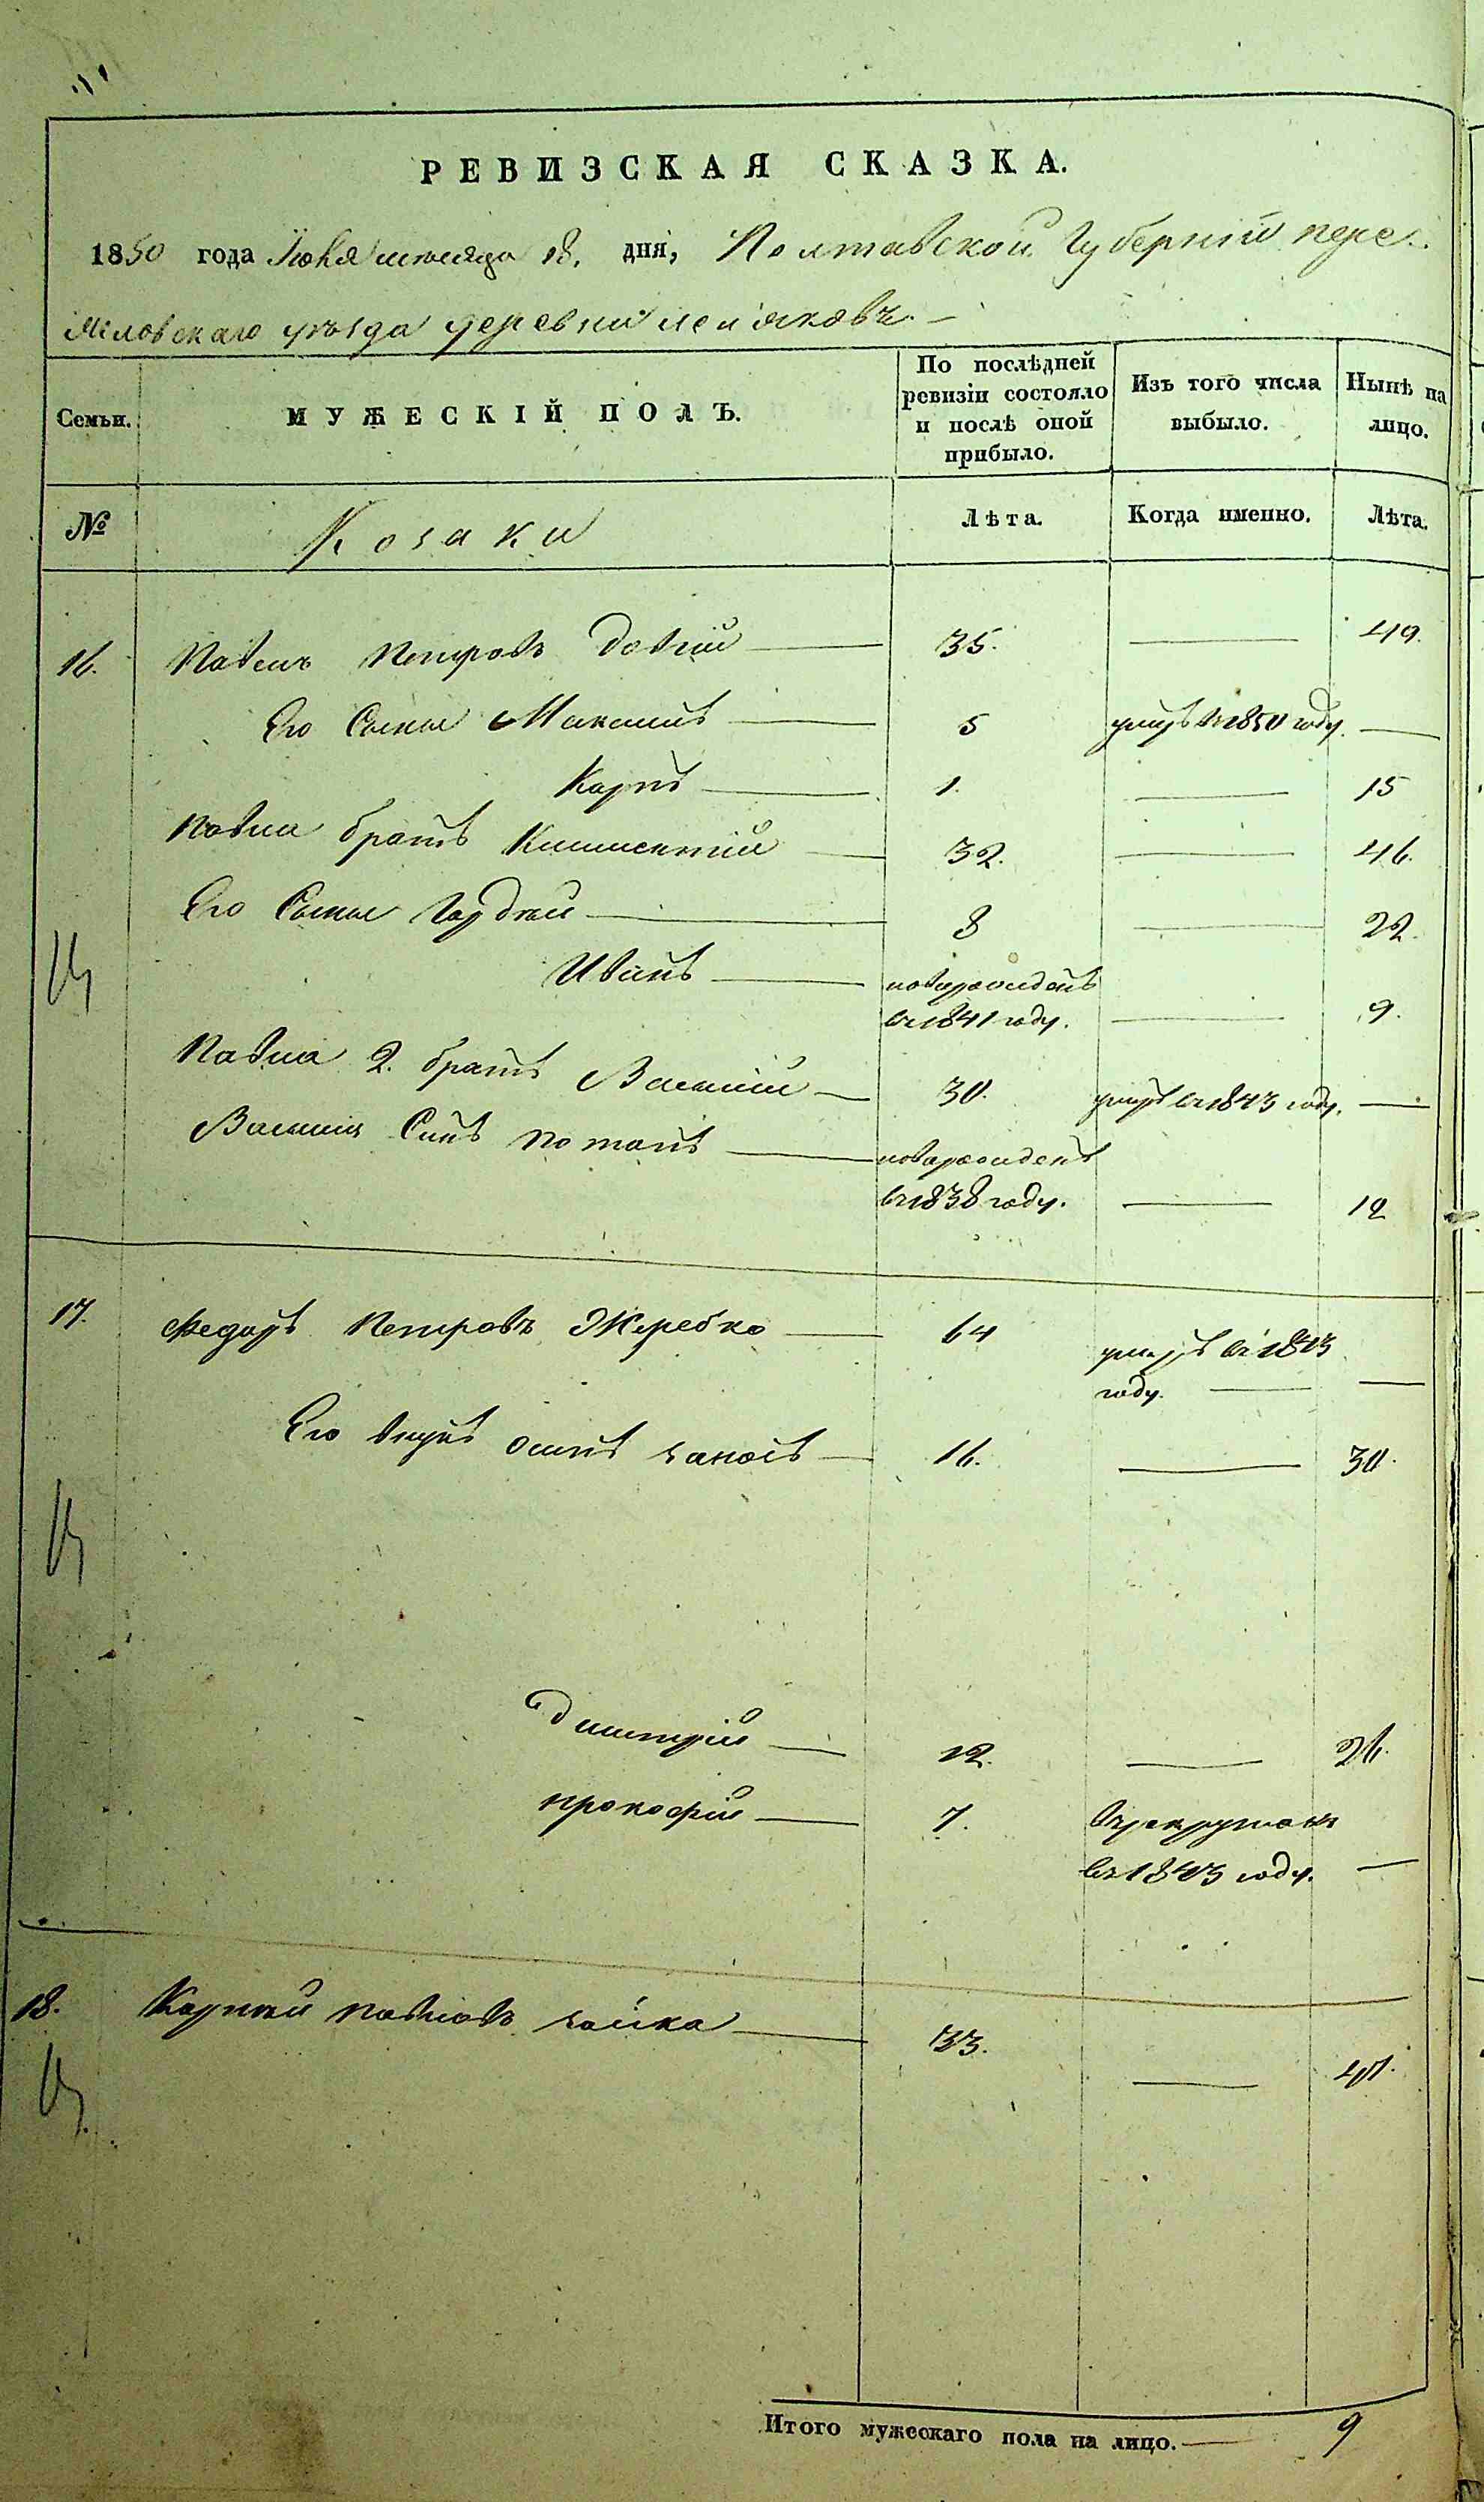 РЕВИЗСКАЯ СКАЗКА.
1850 года Июня месяца 18, дня, Полтавской Губернии пере-
яславскаго уѣзда деревни
Семьи.
МУЖЕСКІЙ ПОЛЪ.
По послѣдней ревизіи состояло и послѣ оной прибыло.
Изъ того числа выбыло.
Нынѣ на лицо.
№ Козаки Лѣта. Когда именно. Лѣта.
16. Павелъ Петровъ Довгий — 35. — 49.
Его Сыны Максимъ — 5 умеръ въ 1850 году. —
Карпъ — 1. — 15
Павла братъ Климентий — 32. — 46.
Его Сыны Гордѣй — 8 — 22.
Иванъ — новорожденъ
въ 1841 году. — 9.
Павла 2. братъ Василий — 30. умеръ въ 1843 году. —
Василия Синъ Потапъ — новорожденъ
въ 1838 году. — 12
17. Федоръ Петровъ Жеребко — 64 умеръ въ 1843
году. — —
Его внукъ Осипъ — 16. — 30.
Димитрий — 12. — 26.
Прокофий — 7. в рекрутахъ
въ 1843 году. —
18. Карпѣй Павловъ — 33. — 47.
Итого мужескаго пола на лицо. — 9